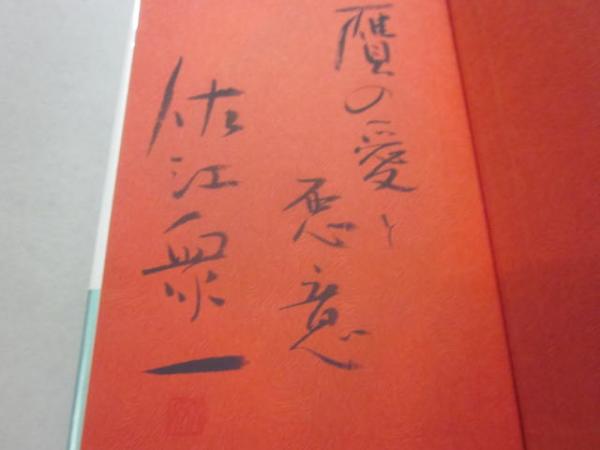 贋の愛と
悪意
佐江衆一